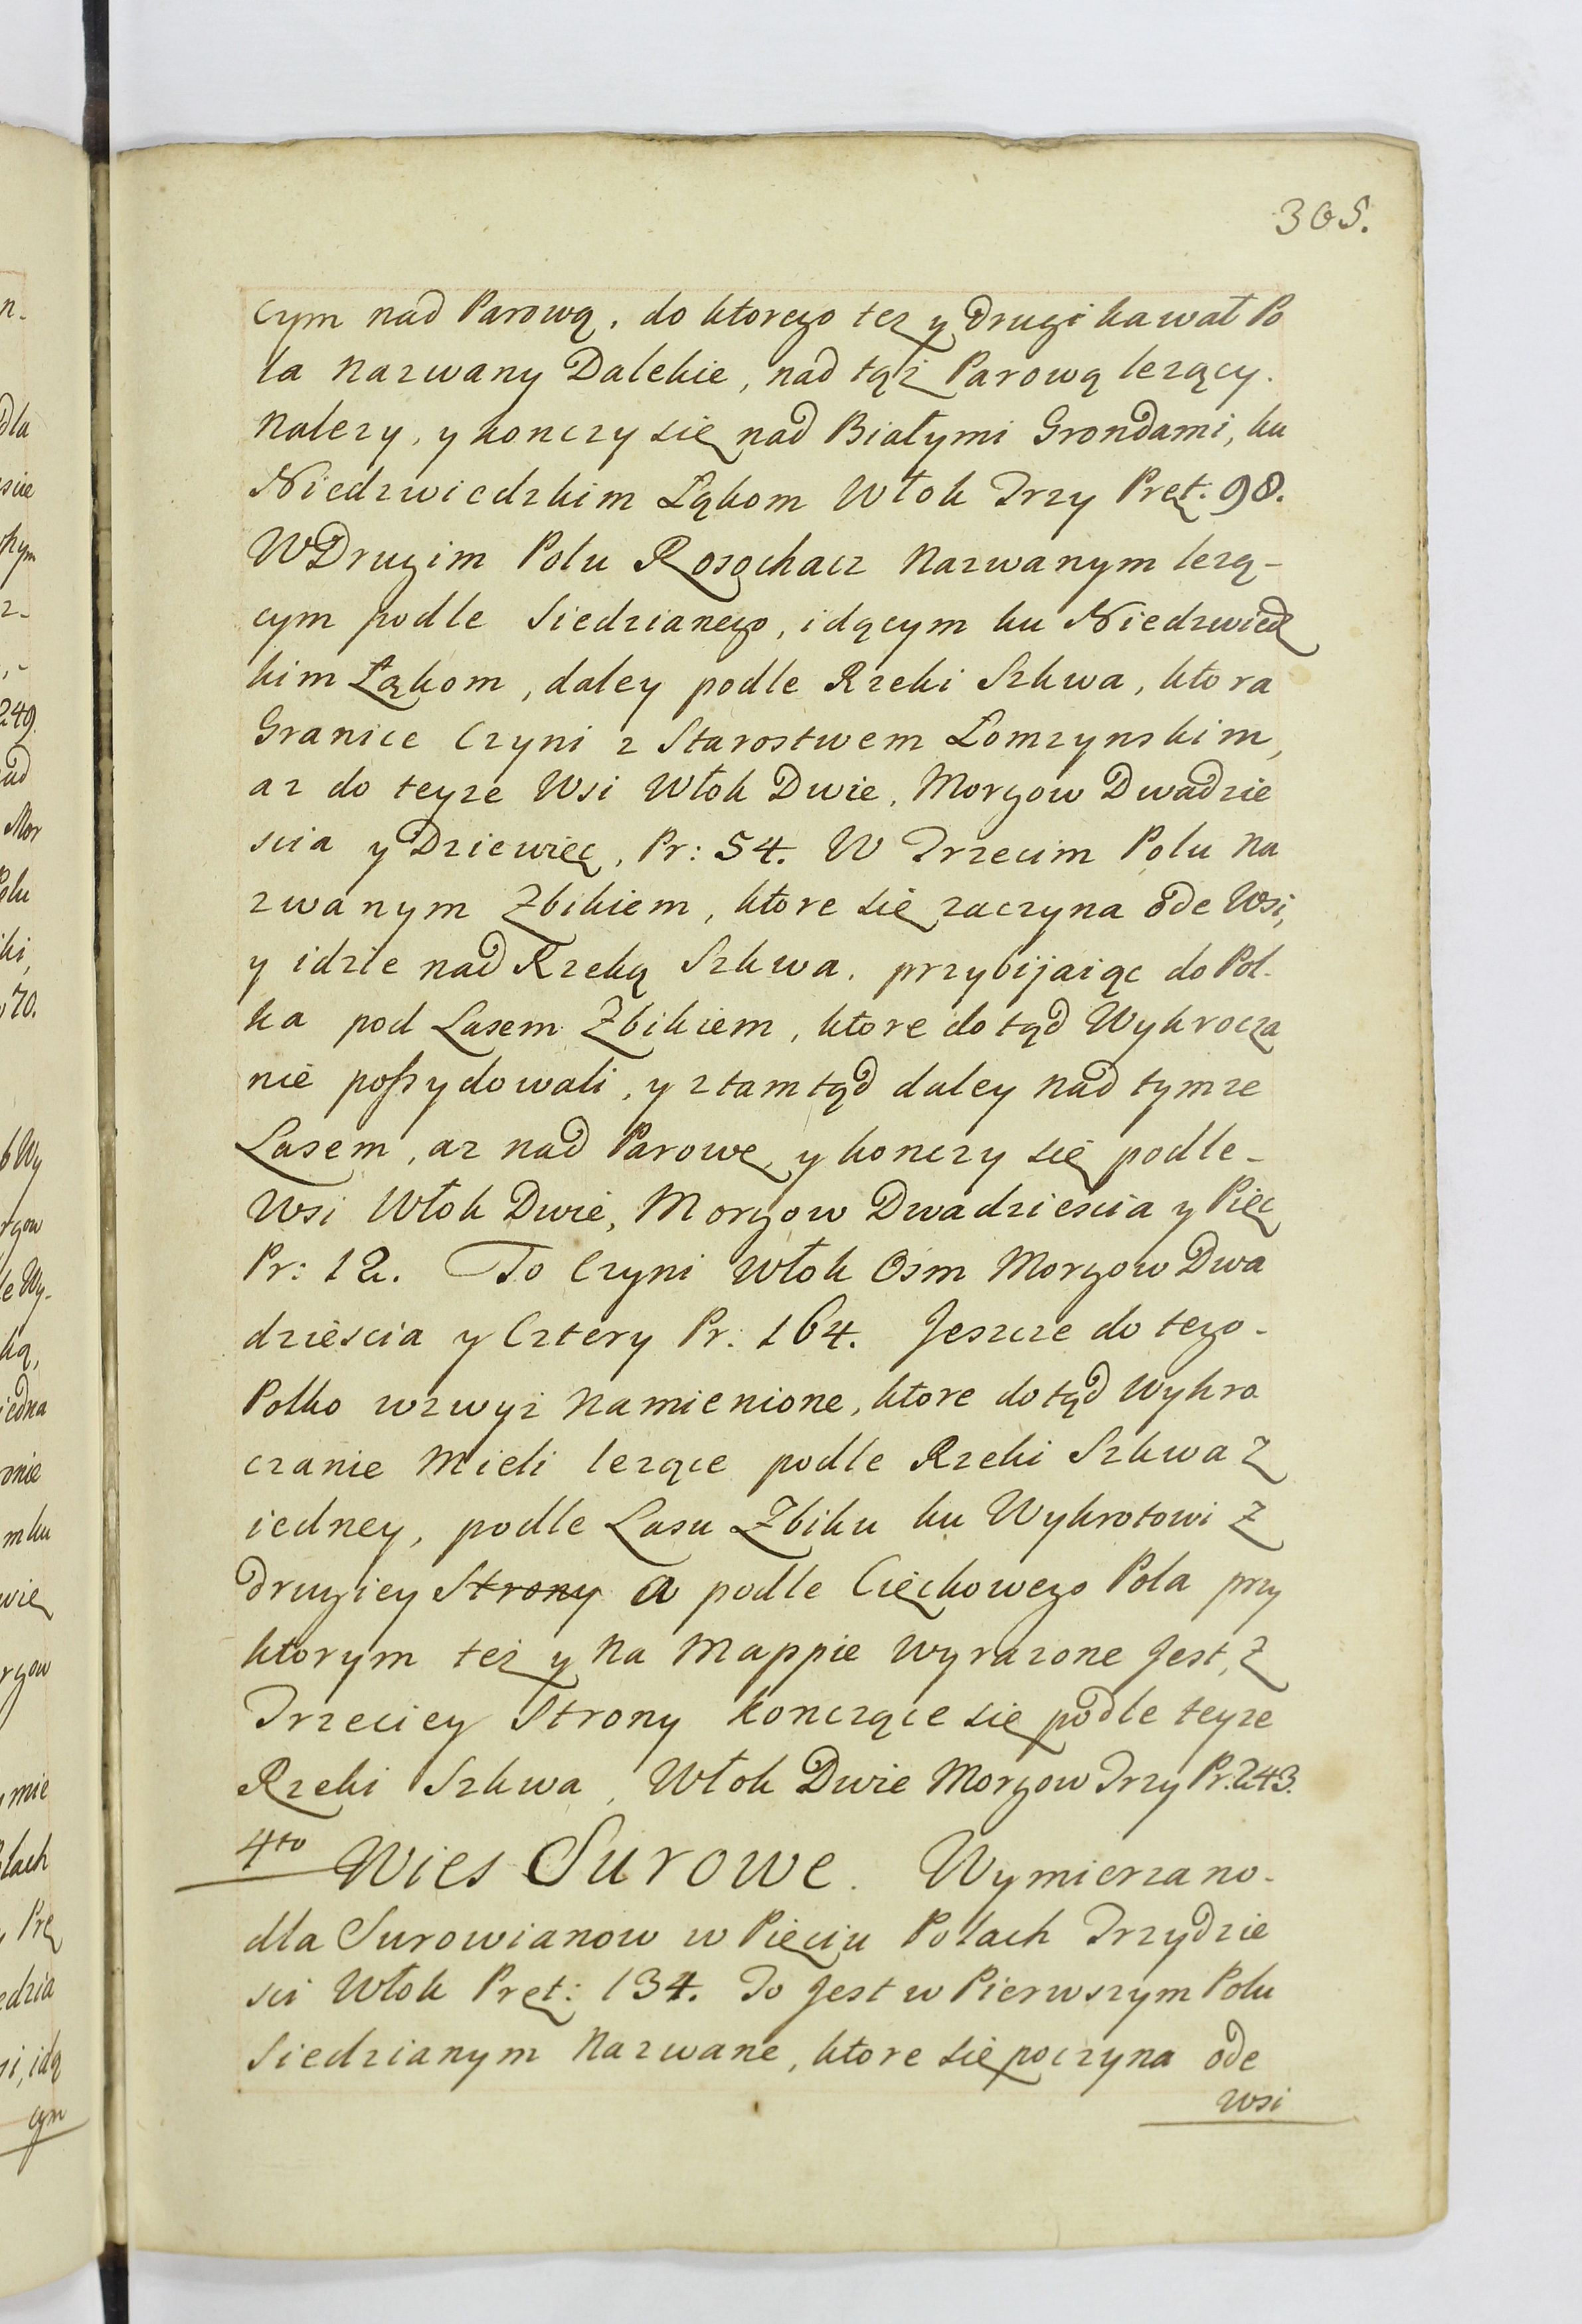 305.
cym nad Parową, do ktorego tez y Drugi kawał Po
la Nazwany Dalekie, nad tąż Parową lezący.
Nalezy, y konczy się nad Białymi Grondami, ku
Niedzwiedzkim Łąkom Włok Trzy Pręt: 98.
W Drugim Polu Rosochacz Nazwanym lezą-
cym podle Siedzianego, idącym ku Niedzwiedz
kim Łąkom, daley podle Rzeki Szkwa, ktora
Granice Czyni z Starostwem Łomzynskim,
az do teyze Wsi Włok Dwie, Morgow Dwadzie
scia y Dziewięc, Pr: 54. W Trzecim Polu Na
zwanym Zbikiem, ktore się zaczyna ode Wsi,
y idzie nad Rzeką Szkwa, przybijaiąc do Pol-
ka pod Lasem Zbikiem, ktore do tąd Wykrocza
nie possydowali, y ztamtąd daley nad tymze
Lasem, az nad Parowę, y konczy się podle-
Wsi Włok Dwie, Morgow Dwadziescia y Pięc
Pr: 12. To Czyni Włok Osm Morgow Dwa
dziescia y Cztery Pr: 164. Jeszcze do tego-
Polko wzwyż Namienione, ktore dotąd Wykro
czanie Mieli lezące podle Rzeki Szkwa z
iedney, podle Lasu Zbiku ku Wykrotowi z
drugiey Strony a podle Cięckowego Pola przy
ktorym też y Na Mappie Wyrazone Jest, z
Trzeciey Strony konczące się podle teyze
Rzeki Szkwa, Włok Dwie Morgow Trzy Pr. 243.
4to Wies Surowe. Wymierzano-
dla Surowianow w Pięciu Polach Trzydzie
sci Włok Pręt: 134. To Jest w Pierwszym Polu
Siedzianym Nazwane, ktore się poczyna ode
Wsi